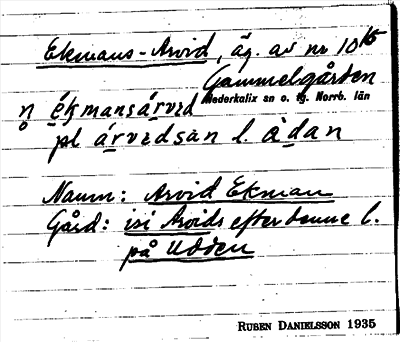 Ekmans-Arvid, äg. av nr 10 15
Gammelgården
Nederkalix sn o. tg. Norrb. län
n ékmansárvɩd
pl árvɩdsan l. àdan
Namn: Arvid Ekman
Gård: isi Arvids efter denne l.
på Udden
RUBEN DANIELSSON 1935